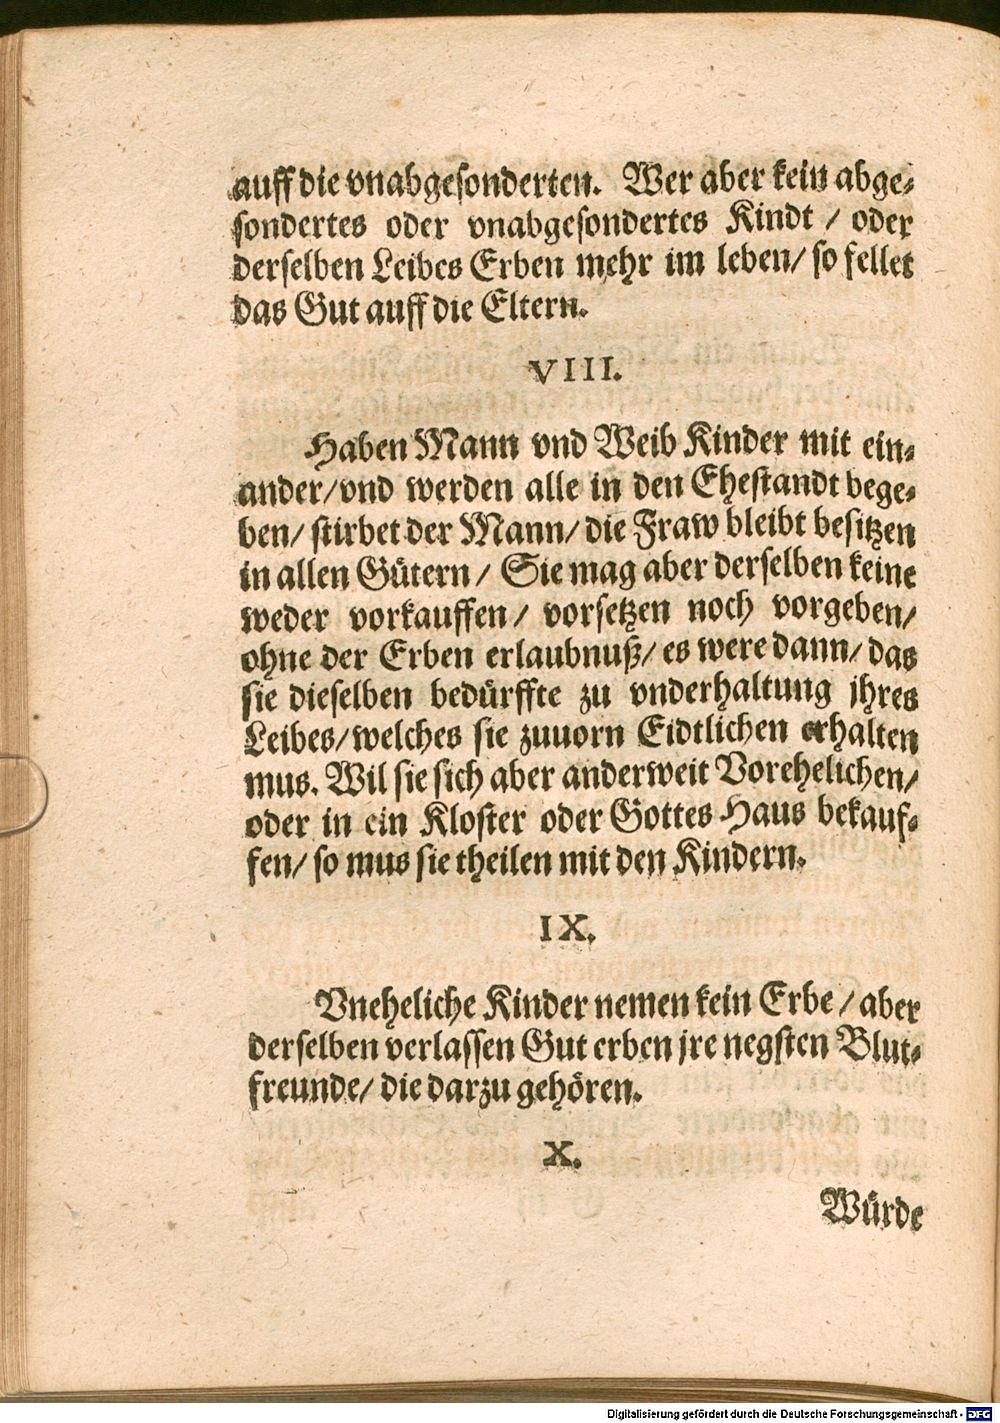 auff die vnabgesonderten. Wer aber kein abge-
sondertes oder vnabgesondertes Kindt / oder
derselben Leibes Erben mehr im leben/ so fellet
das Gut auff die Eltern.
VIII.
Haben Mann vnd Weib Kinder mit ein-
ander/vnd werden alle in den Ehestandt bege-
ben/ stirbet der Mann/ die Fraw bleibt besitzen
in allen Gütern / Sie mag aber derselben keine
weder vorkauffen/ vorsetzen noch vorgeben/
ohne der Erben erlaubnuß/ es were dann/ das
sie dieselben bedürffte zu vnderhaltung jhres
Leibes/welches sie zuuorn Eidtlichen erhalten
mus. Wil sie sich aber anderweit Vorehelichen/
oder in ein Kloster oder Gottes Haus bekauf-
fen/ so mus sie theilen mit den Kindern.
IX.
Vneheliche Kinder nemen kein Erbe / aber
derselben verlassen Gut erben jre negsten Blut-
freunde/ die darzu gehören.
X.
Würde
Digitalisierung gefördert durch die Deutsche Forschungsgemeinschaft - DFG